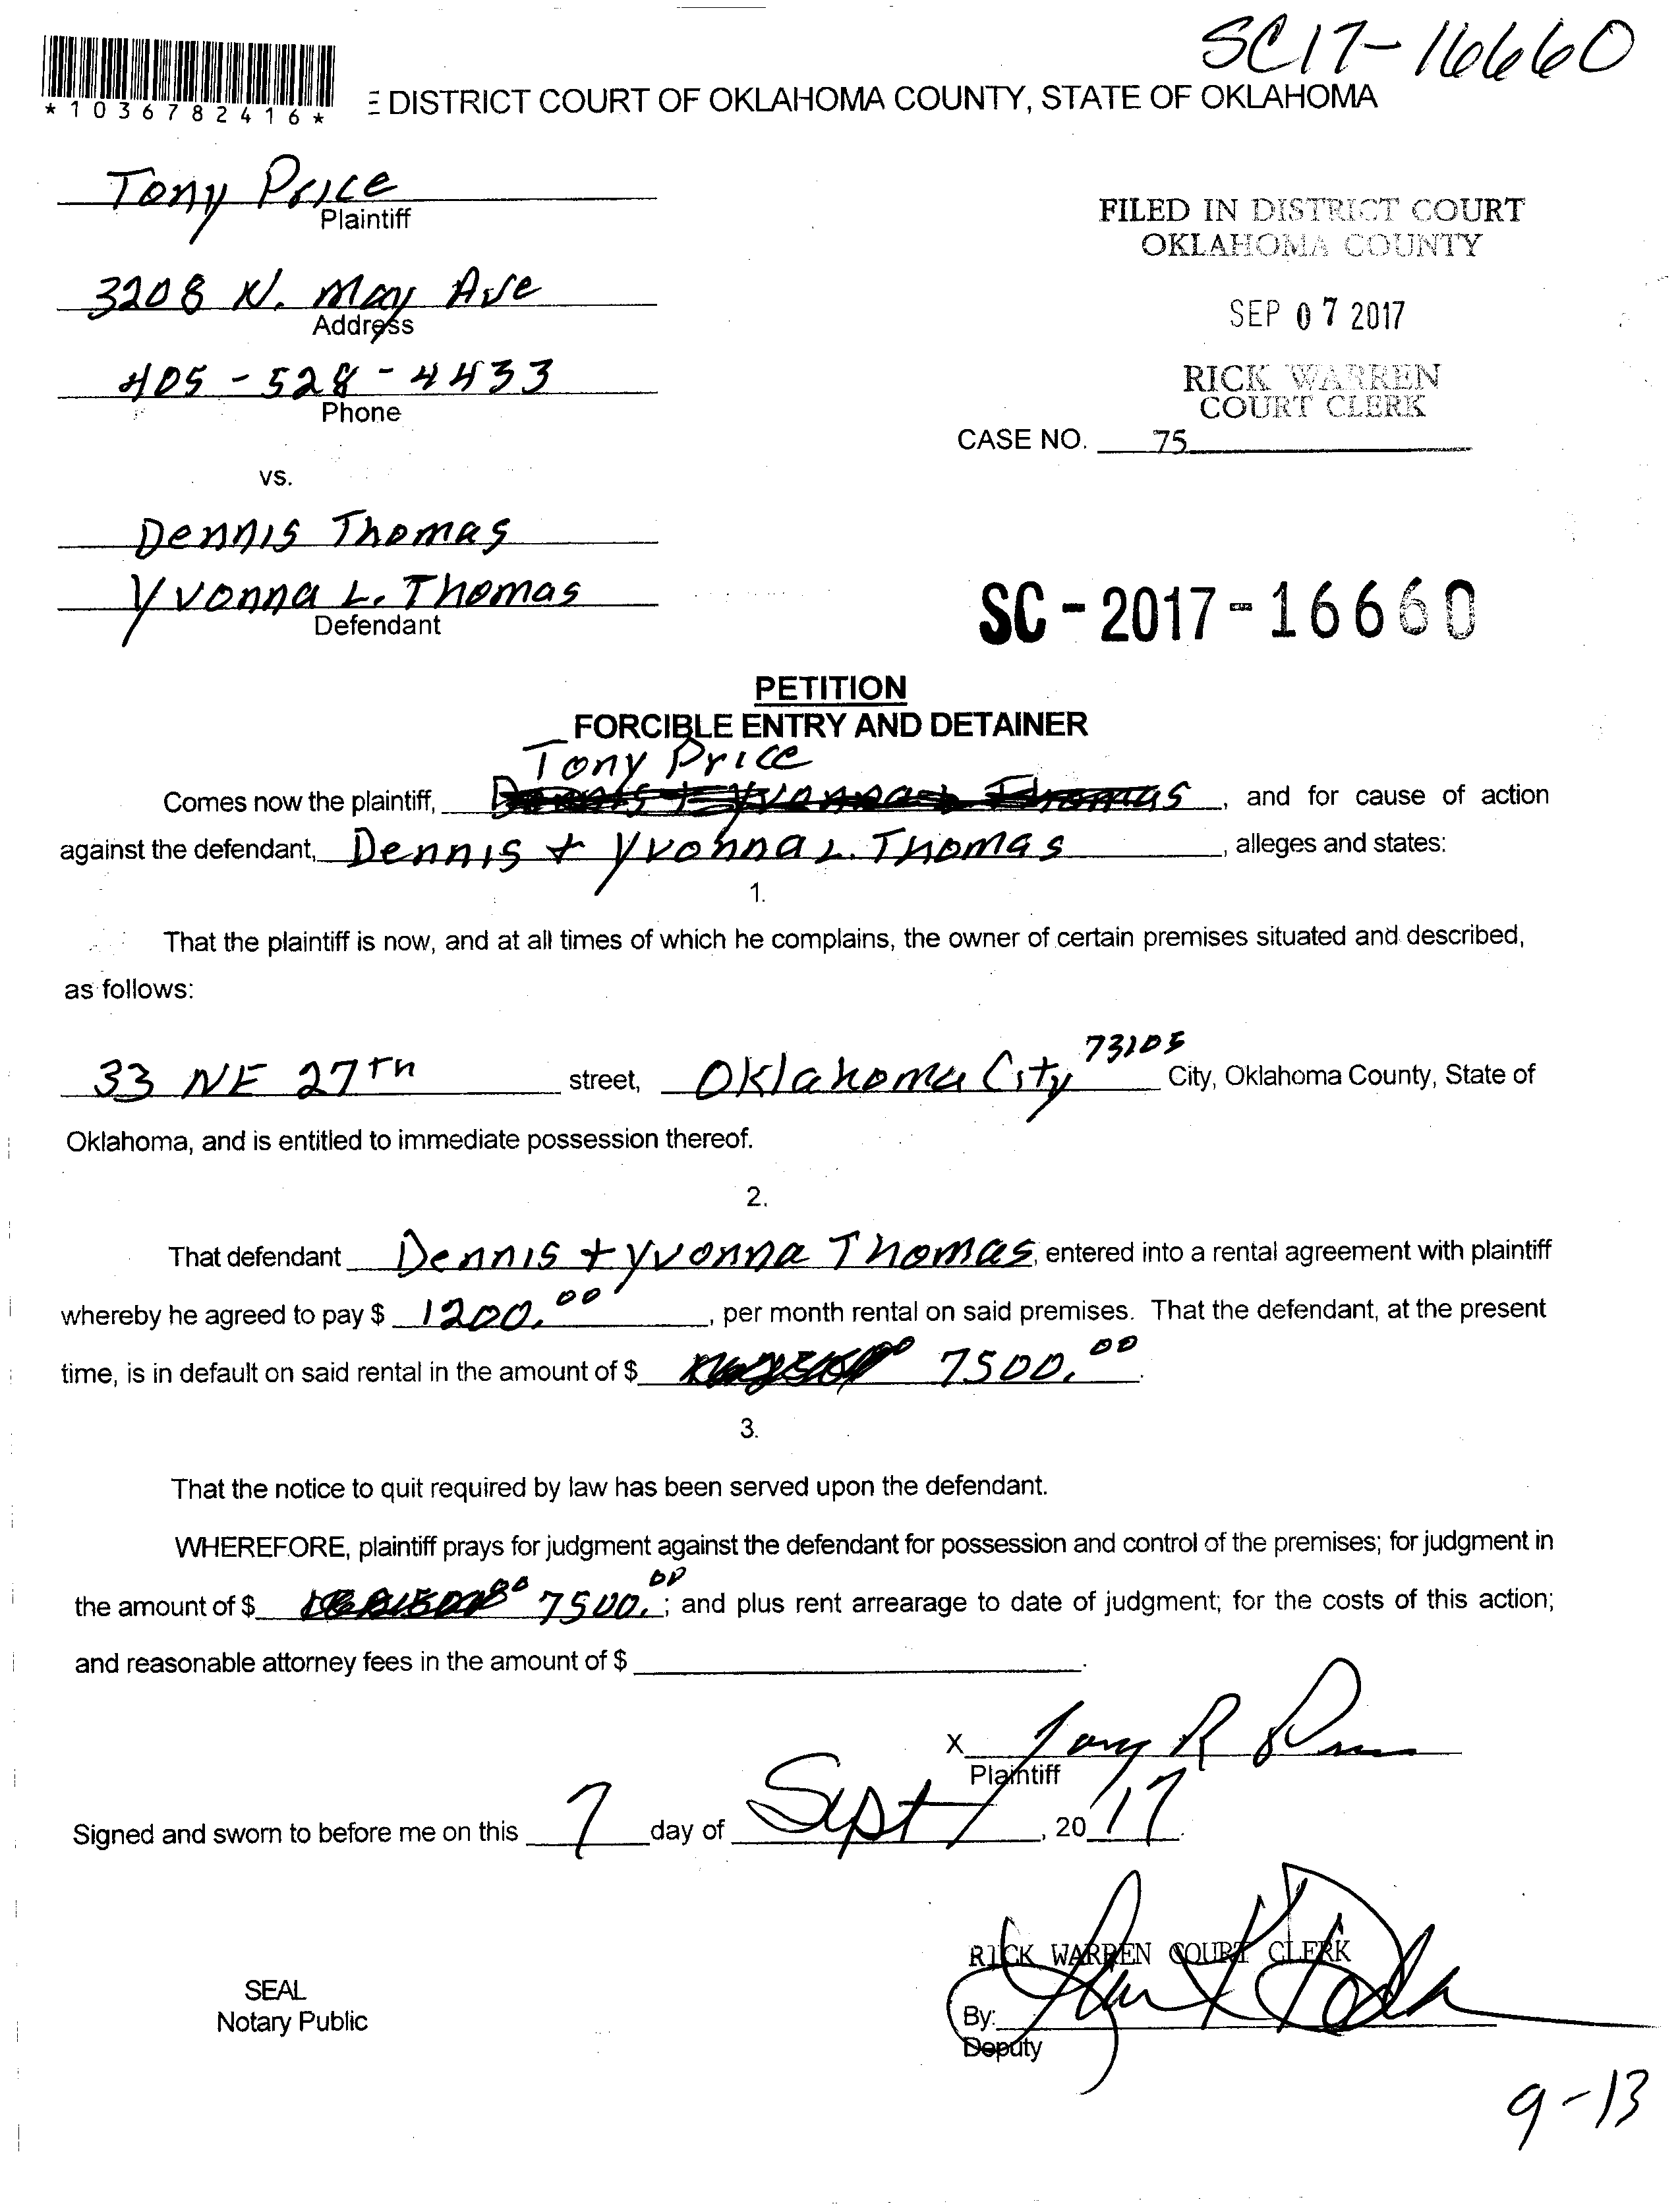 SC17-16660
*1036782416*
E DISTRICT COURT OF OKLAHOMA COUNTY, STATE OF OKLAHOMA
Tony Price
Plaintiff
FILED IN DISTRICT COURT
OKLAHOMA COUNTY
3208 N. May Ave
Address
SEP 07 2017
405-528-4433
Phone
RICK WARREN
COURT CLERK
CASE NO. 75
vs.
Dennis Thomas
Yvonna L. Thomas
Defendant
SC-2017-16660
PETITION
FORCIBLE ENTRY AND DETAINER
Tony Price
Comes now the plaintiff, Dennis + Yvonna L Thomas, and for cause of action
against the defendant, Dennis + Yvonna L. Thomas, alleges and states:
1.
That the plaintiff is now, and at all times of which he complains, the owner of certain premises situated and described,
as follows:
33 NE 27TH street, Oklahoma City 73105 City, Oklahoma County, State of
Oklahoma, and is entitled to immediate possession thereof.
2.
That defendant Dennis + Yvonna Thomas, entered into a rental agreement with plaintiff
whereby he agreed to pay $ 1200.00, per month rental on said premises. That the defendant, at the present
time, is in default on said rental in the amount of $ 7500.00.
3.
That the notice to quit required by law has been served upon the defendant.
WHEREFORE, plaintiff prays for judgment against the defendant for possession and control of the premises; for judgment in
the amount of $ 7500.00; and plus rent arrearage to date of judgment; for the costs of this action;
and reasonable attorney fees in the amount of $ .
X Tony R
Plaintiff
Signed and sworn to before me on this 7 day of Sept, 2017.
RICK WARREN COURT CLERK
SEAL
Notary Public
By:
Deputy
9-13